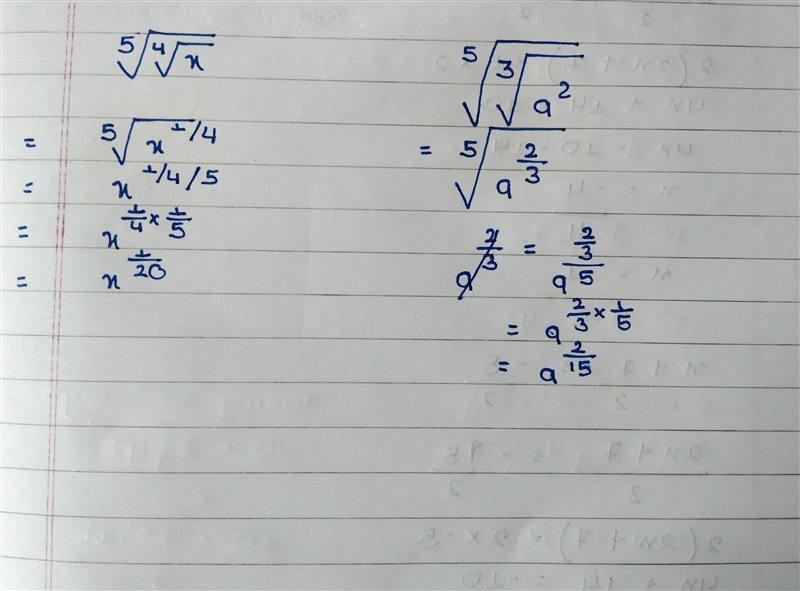 ⁵√(⁴√x)
= ⁵√(x^1/4)
= x^1/4/5
= x^(1/4 × 1/5)
= x^(1/20)
⁵√(³√(a²))
= ⁵√(a^(2/3))
a^(2/3) = a^((2/3)/5)
= a^(2/3 × 1/5)
= a^(2/15)